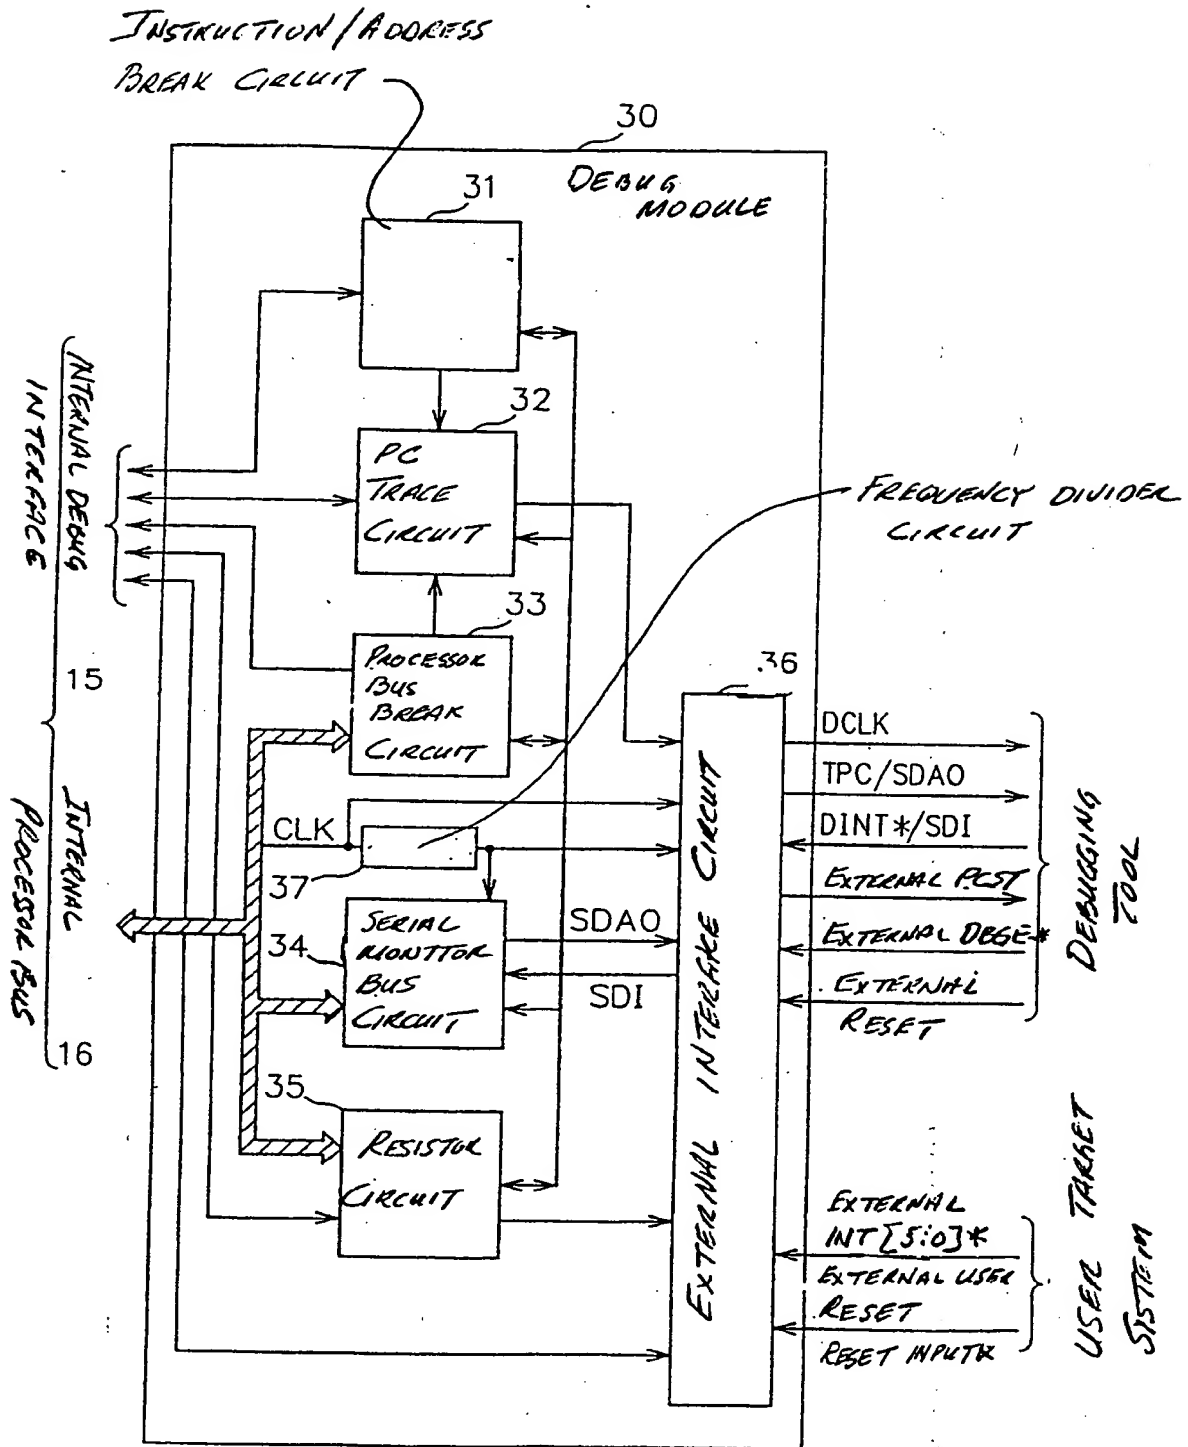 INSTRUCTION/ADDRESS
BREAK CIRCUIT
30
DEBUG
MODULE
31
32
PC
TRACE
CIRCUIT
FREQUENCY DIVIDER
CIRCUIT
INTERNAL DEBUG
INTERFACE
15
33
PROCESSOR
BUS
BREAK
CIRCUIT
36
EXTERNAL INTERFACE CIRCUIT
CLK
37
INTERNAL
PROCESSOR BUS
16
34
SERIAL
MONITOR
BUS
CIRCUIT
SDAO
SDI
35
RESISTOR
CIRCUIT
DCLK
TPC/SDAO
DINT*/SDI
EXTERNAL PCST
EXTERNAL DBGE*
EXTERNAL
RESET
DEBUGGING
TOOL
EXTERNAL
INT[5:0]*
EXTERNAL USER
RESET
RESET INPUT*
USER TARGET
SYSTEM